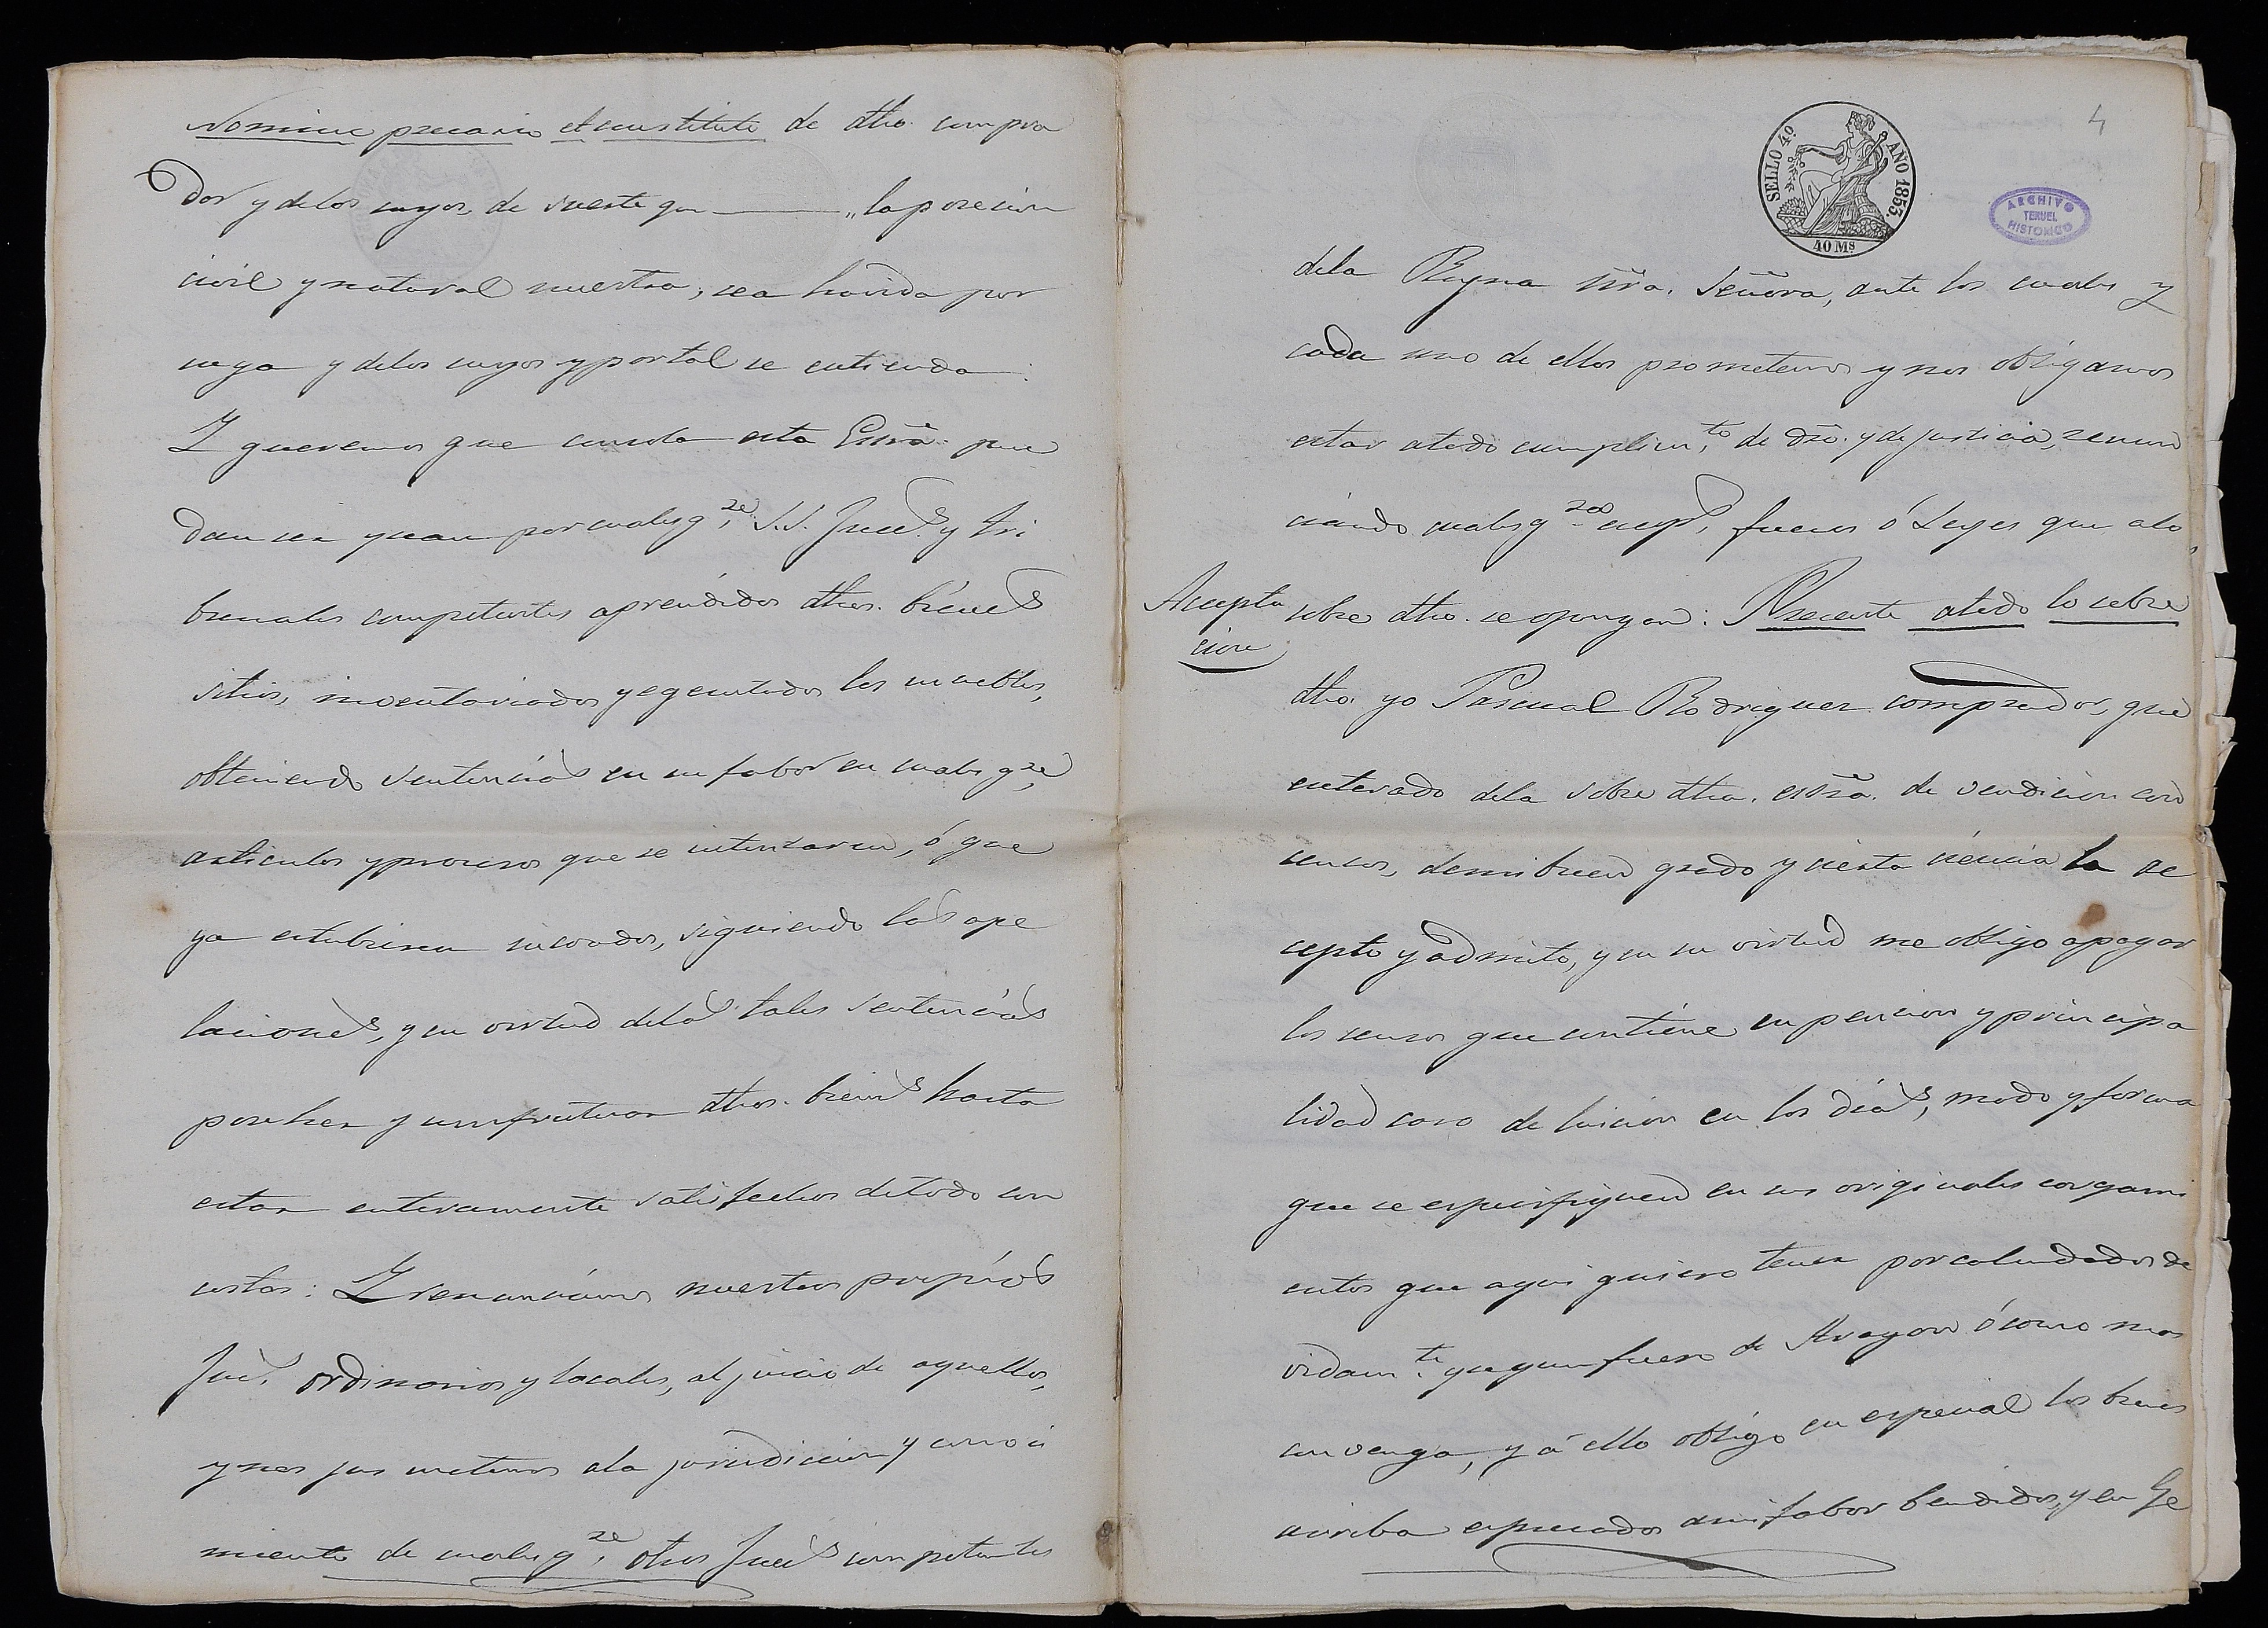 Nomine precario et constituto de dho. compra
dor y delos suyos, de suerte que ———„ la posecion
civil y natural nuestra, sea havida por
suya y delos suyos y portal se entienda:
Y queremos que consola esta Essrã. pue
dan ser y sean por cualesq.re S.S. Juec.s y Tri
bunales competentes aprendidos dhos. biénes
sitios, inventariados y egecutados los muebles,
obteniendo senténcias en su fabor en cuales qre
articulos y procesos que se intentaren, ó que
ya estubiesen incoados, siguiendo las ape
laciones, y en virtud delas tales senténcias
posehér y usufrutuar dhos. bienes hasta
estar enteramente satisfechos detodo con
costas: Y renunciamos nuestros própios
Jue.s ordinarios y locales, al juicio de aquellos,
y nos jus metemos ala jurisdicion y conoci
miento de cualesq.re otros Jueces competentes
4
SELLO 4º. AÑO 1853.
40 Ms
ARCHIVO
TERUEL
HISTORICO
dela Reyna nr̃a. Señora, ante los cuales y
cada uno de ellos prometemos y nos obligamos
estar atodo cumplim.to de dr̃o. y de justicia, renun
ciándo cualesq.ra fueros ó Leyes que alo
Acepta
cion
sobre dho. se opongan: Presente atodo lo sobre
dho. yo Pascual Rodriguez comprador, que
enterado dela sobre dha. essr̃a. de vendicion con
censos, demi buen grado y cierta ciéncia la ac
cepto y admito, y en su virtud me obligo apagar
los censos que contiéne en pencion y principa
lidad caso de luicion en los días, modo y forma
que se espécifiquen en sus originales cargami
entos que aqui quiero tener por calendados de
vidam.te segun fuero de Aragon ó como mas
convenga, y á ello obligo en especial los bienes
arriba espresados ami fabor bendidos, y en Ge